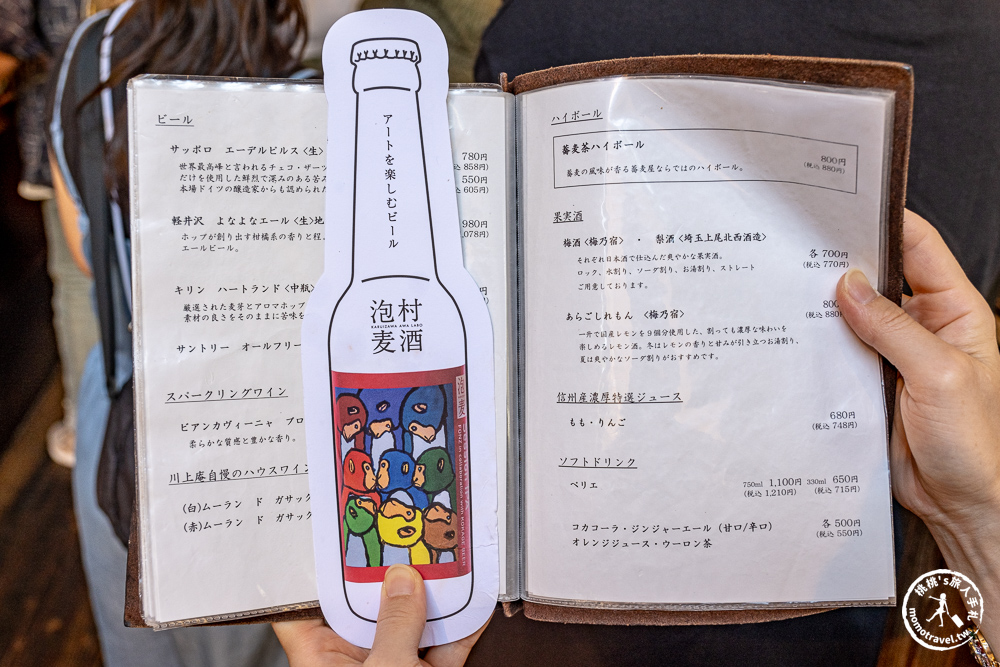 ビール
サッポロ エーデルピルス〈生〉
780円
858円)
世界最高峰と言われるチェコ・ザーツ
だけを使用した鮮烈で深みのある苦み
550円
本場ドイツの醸造家からも認められた
605円)
軽井沢 よなよなエール〈生〉地
980円
1,078円)
ホップが創り出す柑橘系の香りと程
エールビール。
キリン ハートランド〈中瓶〉
厳選された麦芽とアロマホップ
素材の良さをそのままに苦味を
サントリー オールフリー
スパークリングワイン
ビアンカヴィーニャ プロ
柔らかな質感と豊かな香り。
川上庵自慢のハウスワイン
(白)ムーラン ド ガサック
(赤)ムーラン ド ガサック
アートを楽しむビール
泡村
KARUIZAWA AWA LABO
麦酒
ハイボール
蕎麦茶ハイボール
800円
(税込 880円)
蕎麦の風味が香る蕎麦屋ならではのハイボール。
果実酒
梅酒〈梅乃宿〉 ・ 梨酒〈埼玉上尾北西酒造〉
各 700円
(税込 770円)
それぞれ日本酒で仕込んだ爽やかな果実酒。
ロック、水割り、ソーダ割り、お湯割り、ストレート
ご用意しております。
あらごしれもん 〈梅乃宿〉
800
(税込 880
一升で国産レモンを9個分使用した、割っても濃厚な味わいを
楽しめるレモン酒。冬はレモンの香りと甘みが引き立つお湯割り、
夏は爽やかなソーダ割りがおすすめです。
信州産濃厚特選ジュース
もも・りんご
680円
(税込 748円)
ソフトドリンク
ペリエ
750ml 1,100円 330ml 650円
(税込 1,210円) (税込 715円)
コカコーラ・ジンジャーエール (甘口/辛口)
オレンジジュース・ウーロン茶
各 500円
(税込 550円)
桃桃's旅人手札
momotravel.tw